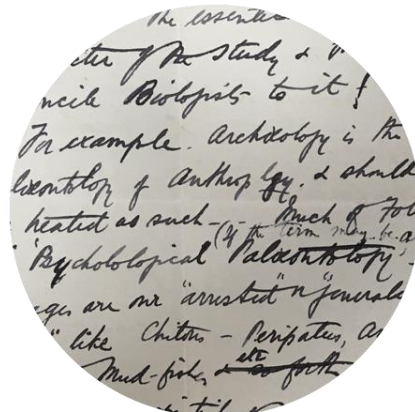 The essentia
cter of the Study &
ncile Biologists to it!
For example. Archæology is the
læontology of Anthropology. & should
treated as such — Much of Fol
(if the term may be a
"Psychological Palæontology
ages are our "arrested" or "generali
" like Chitons - Peripatus, as
Mud-fishes & etc so forth